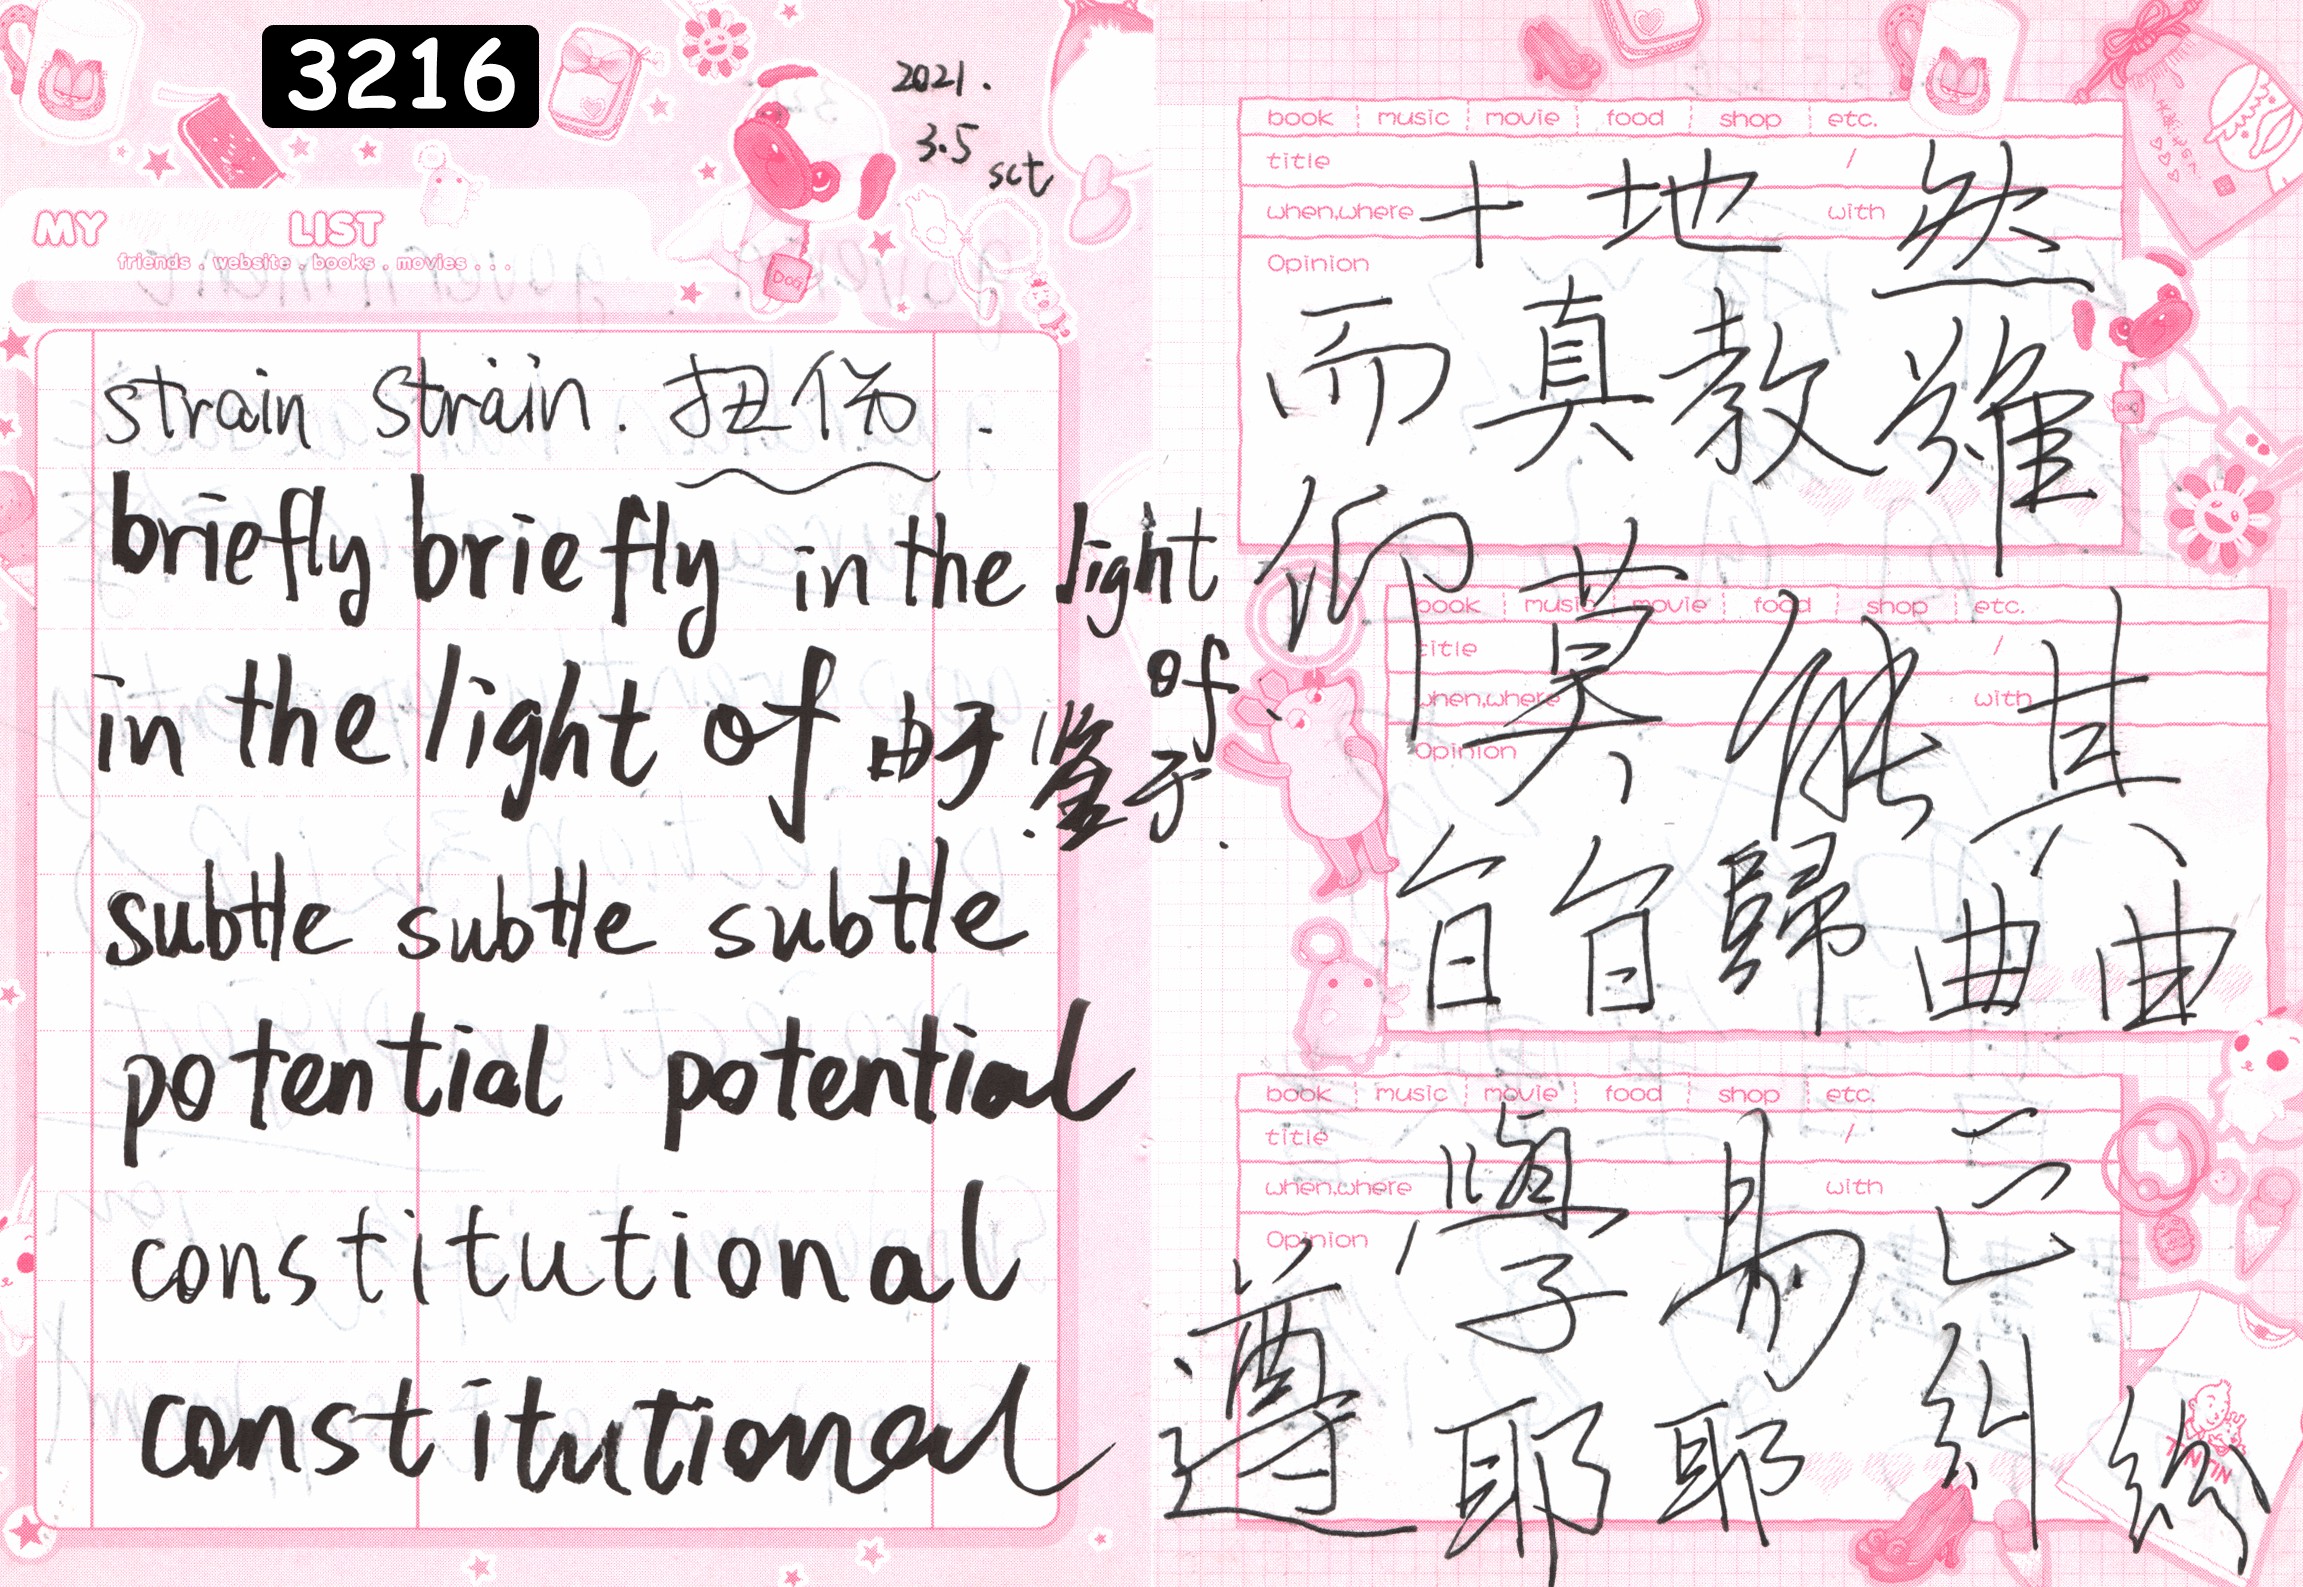 3216
2021.
3.5
sct
MY LIST
friends . website . books . movies . . .
DOG
strain strain. 扭伤.
briefly briefly in the light of
in the light of 由于 鉴于.
subtle subtle subtle
potential potential
constitutional
constitutional
book music movie food shop etc.
title /
when,where with
Opinion
十地然
而真教雖
book music movie food shop etc.
title /
when,where with
Opinion
仰莫能其
旨旨歸曲曲
book music movie food shop etc.
title /
when,where with
Opinion
學易云
遵耶耶糾紛